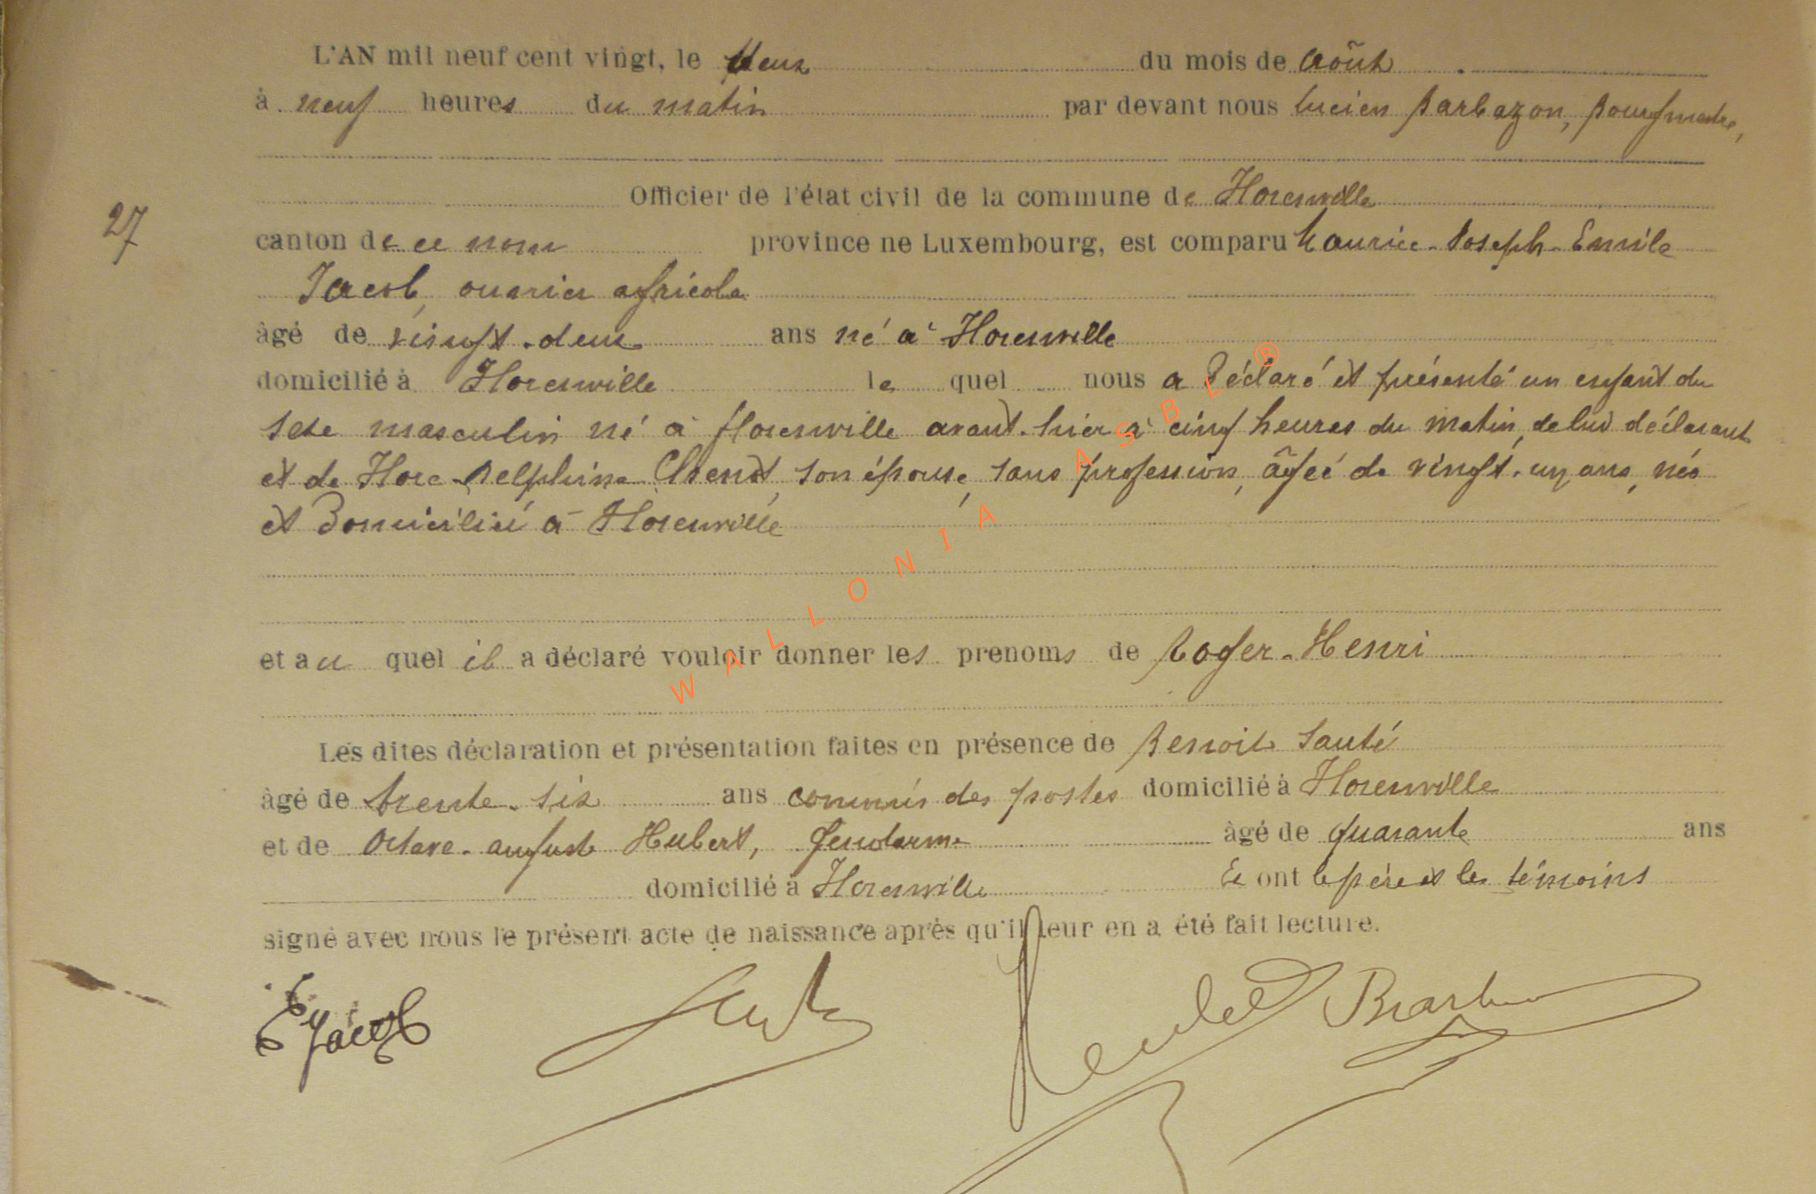 L'AN mil neuf cent vingt, le deux du mois de Août
à neuf heures du matin par devant nous Lucien Barbazon, Bourgmestre,
Officier de l'état civil de la commune de Florenville
27
canton de ce nom province ne Luxembourg, est comparu Maurice-Joseph-Emile
Jacob, ouvrier agricole
âgé de vingt-deux ans né à Florenville
domicilié à Florenville le quel nous a Déclaré et présenté un enfant du
sexe masculin né à florenville avant-hier à cinq heures du matin, de lui déclarant
et de Flore-Delphine Chenot, son épouse, sans profession, âgée de vingt-un ans, née
et Domiciliée à Florenville
et au quel il a déclaré vouloir donner les prenoms de Roger-Henri
Les dites déclaration et présentation faites en présence de Benoit Sauté
âgé de trente-six ans commis des postes domicilié à Florenville
et de Octave-August Hubert, Gendarme âgé de quarante ans
domicilié à Florenville Et ont le père et les témoins
signé avec nous le présent acte de naissance après qu'il leur en a été fait lecture.
E Jacob
WALLONIA ASBL ®